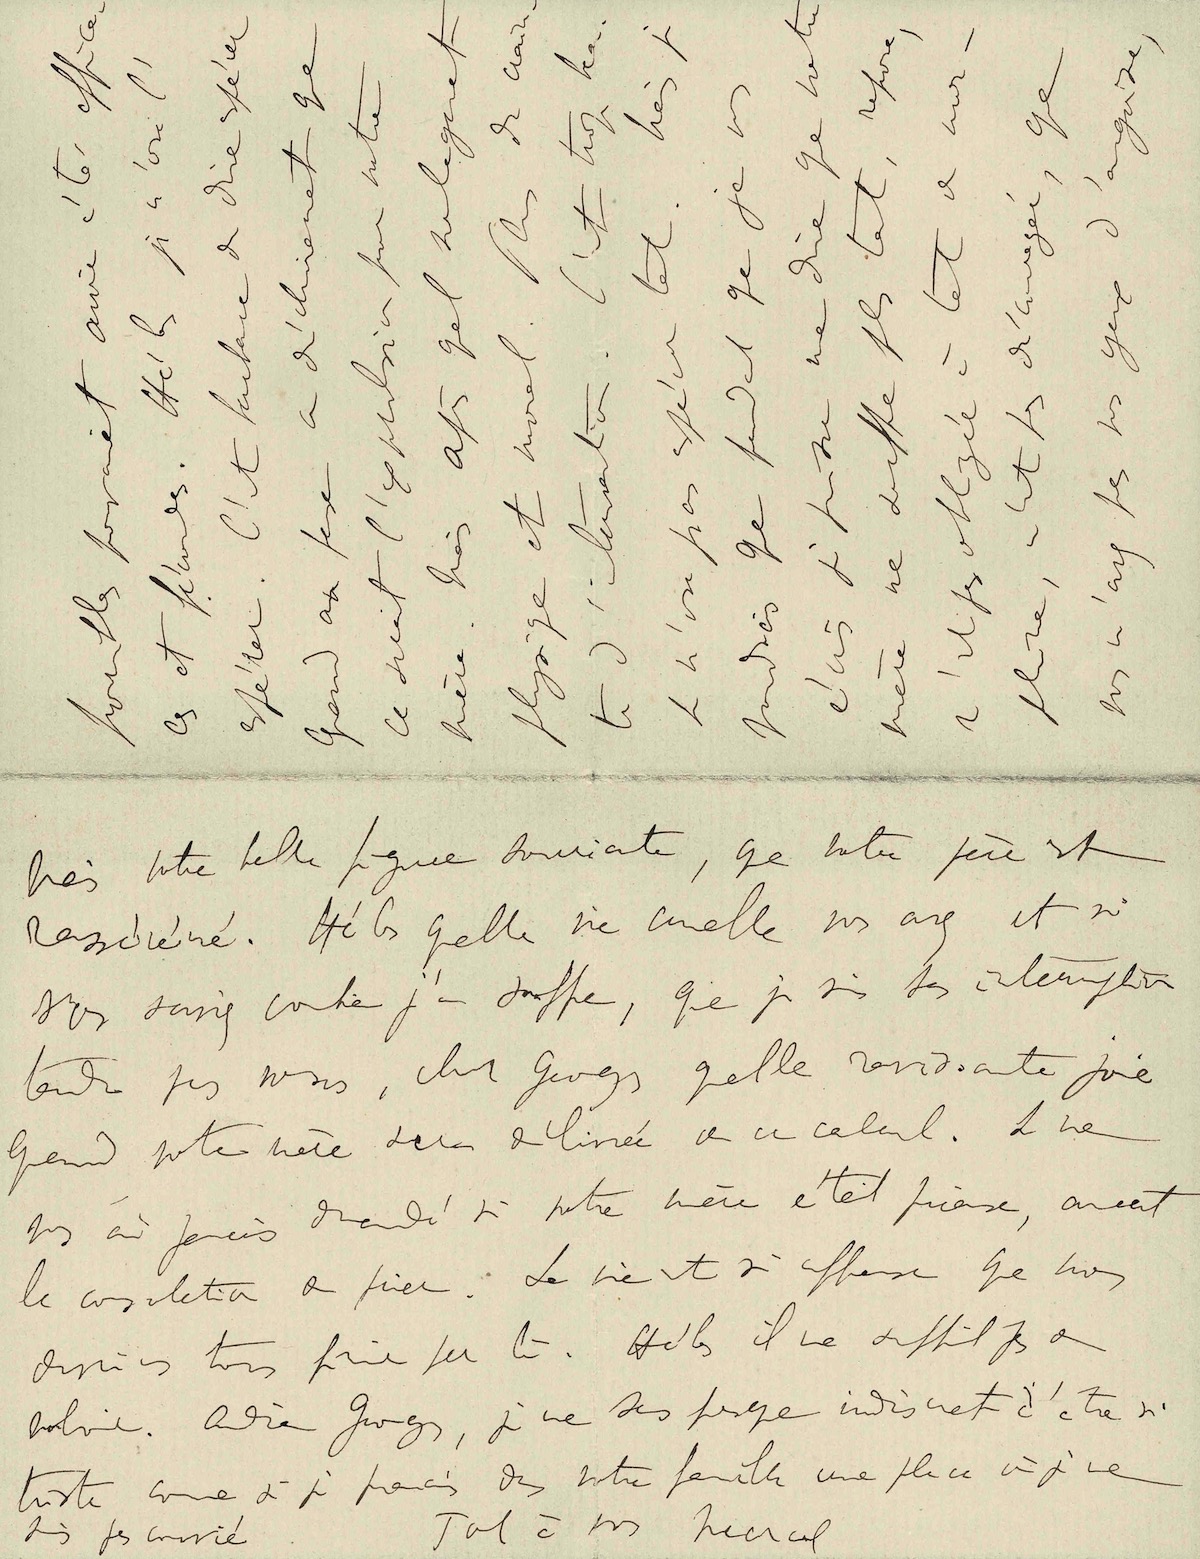 possibles pourraient avoir été effica-
ces et fécondes. Hélas je n'ose l'
espérer. C'est barbare de dire espérer
quand on pense au déchirement que
ce serait l'expulsion pour votre
mère. Mais après quel soulagement
physique et moral. Plus de crain-
te d'intervention. C'est trop beau.
Je n'ose pas espérer tant. Mais je
voudrais que pendant que je vous
écris je puisse me dire que votre
mère ne souffre plus tant, repose,
n'est pas obligée à tout ce mor-
phine, n'est pas découragée, que
vous n'avez pas vos yeux d'angoisse,
Mais votre belle figure souriante, que votre père est
rasséréné. Hélas quelle vie cruelle vous avez et si
vous saviez combien j'en souffre, que je suis sans interruption
tendu vers vous, cher Georges quelle ravissante joie
quand votre mère sera délivrée de ce calcul. Je ne
vous ai jamais demandé si votre mère était pieuse, avait
la consolation de prier. La vie est si affreuse que nous
devrions tous finir par là. Hélas il ne suffit pas de
vouloir. Adieu Georges, je me sens presque indiscret d'être si
triste comme si je prenais dans votre famille une place où je ne
suis pas convié Tout à vous Marcel